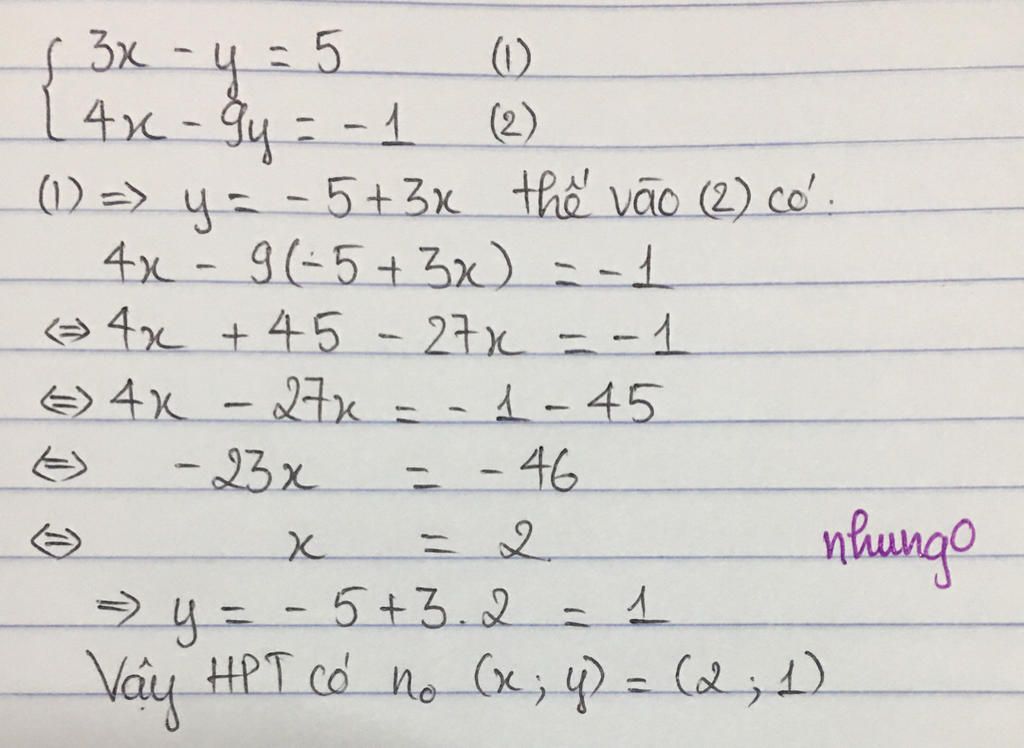 { 3x - y = 5 (1)
4x - 9y = -1 (2)
(1) => y = -5 + 3x thế vào (2) có:
4x - 9(-5 + 3x) = -1
<=> 4x + 45 - 27x = -1
<=> 4x - 27x = -1 - 45
<=> -23x = -46
<=> x = 2
nhung0
=> y = -5 + 3.2 = 1
Vậy HPT có no (x; y) = (2; 1)